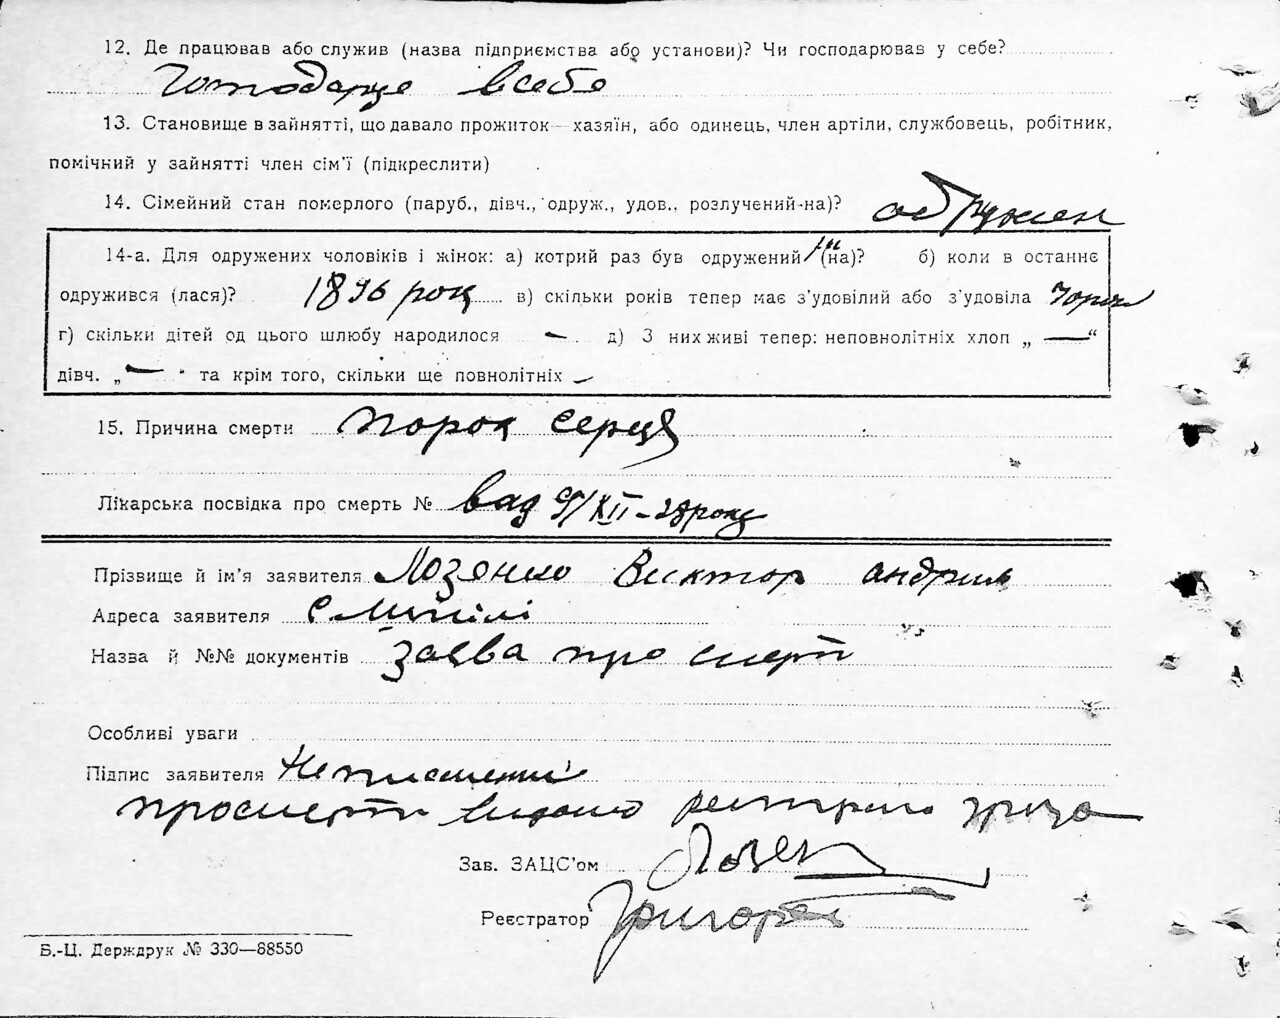 12. Де працював або служив (назва підприємства або установи)? Чи господарював у себе?
Господарце всебе
13. Становище в зайнятті, що давало прожиток—хазяїн, або одинець, член артіли, службовець, робітник,
помічний у зайнятті член сім'ї (підкреслити)
14. Сімейний стан померлого (паруб., дівч., одруж., удов., розлучений-на)? одружен
14-а. Для одружених чоловіків і жінок: а) котрий раз був одружений (на)? б) коли в останнє
одружився (лася)? 1896 року в) скільки років тепер має з'удовілий або з'удовіла
г) скільки дітей од цього шлюбу народилося — д) З них живі тепер: неповнолітніх хлоп „ — “
дівч. „ — " та крім того, скільки ще повнолітніх —
15. Причина смерти порок серця
Лікарська посвідка про смерть № від 9/XII-28 року
Прізвище й ім'я заявителя Лозенко Виктор андрій
Адреса заявителя с
Назва й №№ документів Заява про смерть
Особливі уваги
Підпис заявителя Неписьменні
про смерть видано
Зав. ЗАЦС'ом
Реєстратор
Б.-Ц. Держдрук № 330—88550